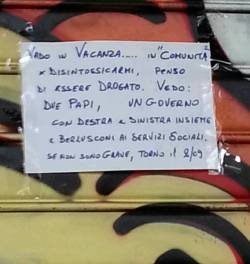 VADO IN VACANZA..... IN "COMUNITA"
X DISINTOSSICARMI, PENSO
DI ESSERE DROGATO. VEDO:
DUE PAPI, UN GOVERNO
CON DESTRA E SINISTRA INSIEME
E BERLUSCONI AI SERVIZI SOCIALI.
SE NON SONO GRAVE, TORNO il 2/09